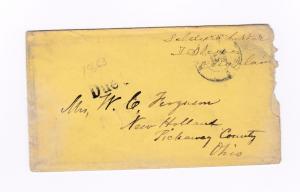 Soldier's Letter
1863
Due
Mrs. W. C. Ferguson
New Holland
Pickaway County
Ohio